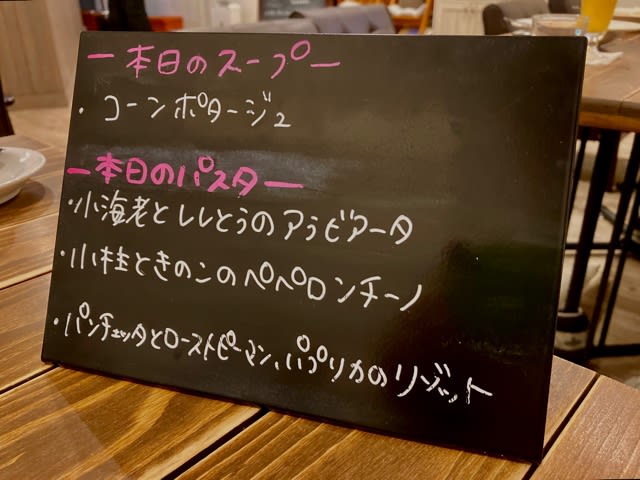 ー本日のスープー
・コーンポタージュ
ー本日のパスター
・小海老とししとうのアラビアータ
・小柱ときのこのペペロンチーノ
・パンチェッタとローストピーマン、パプリカのリゾット